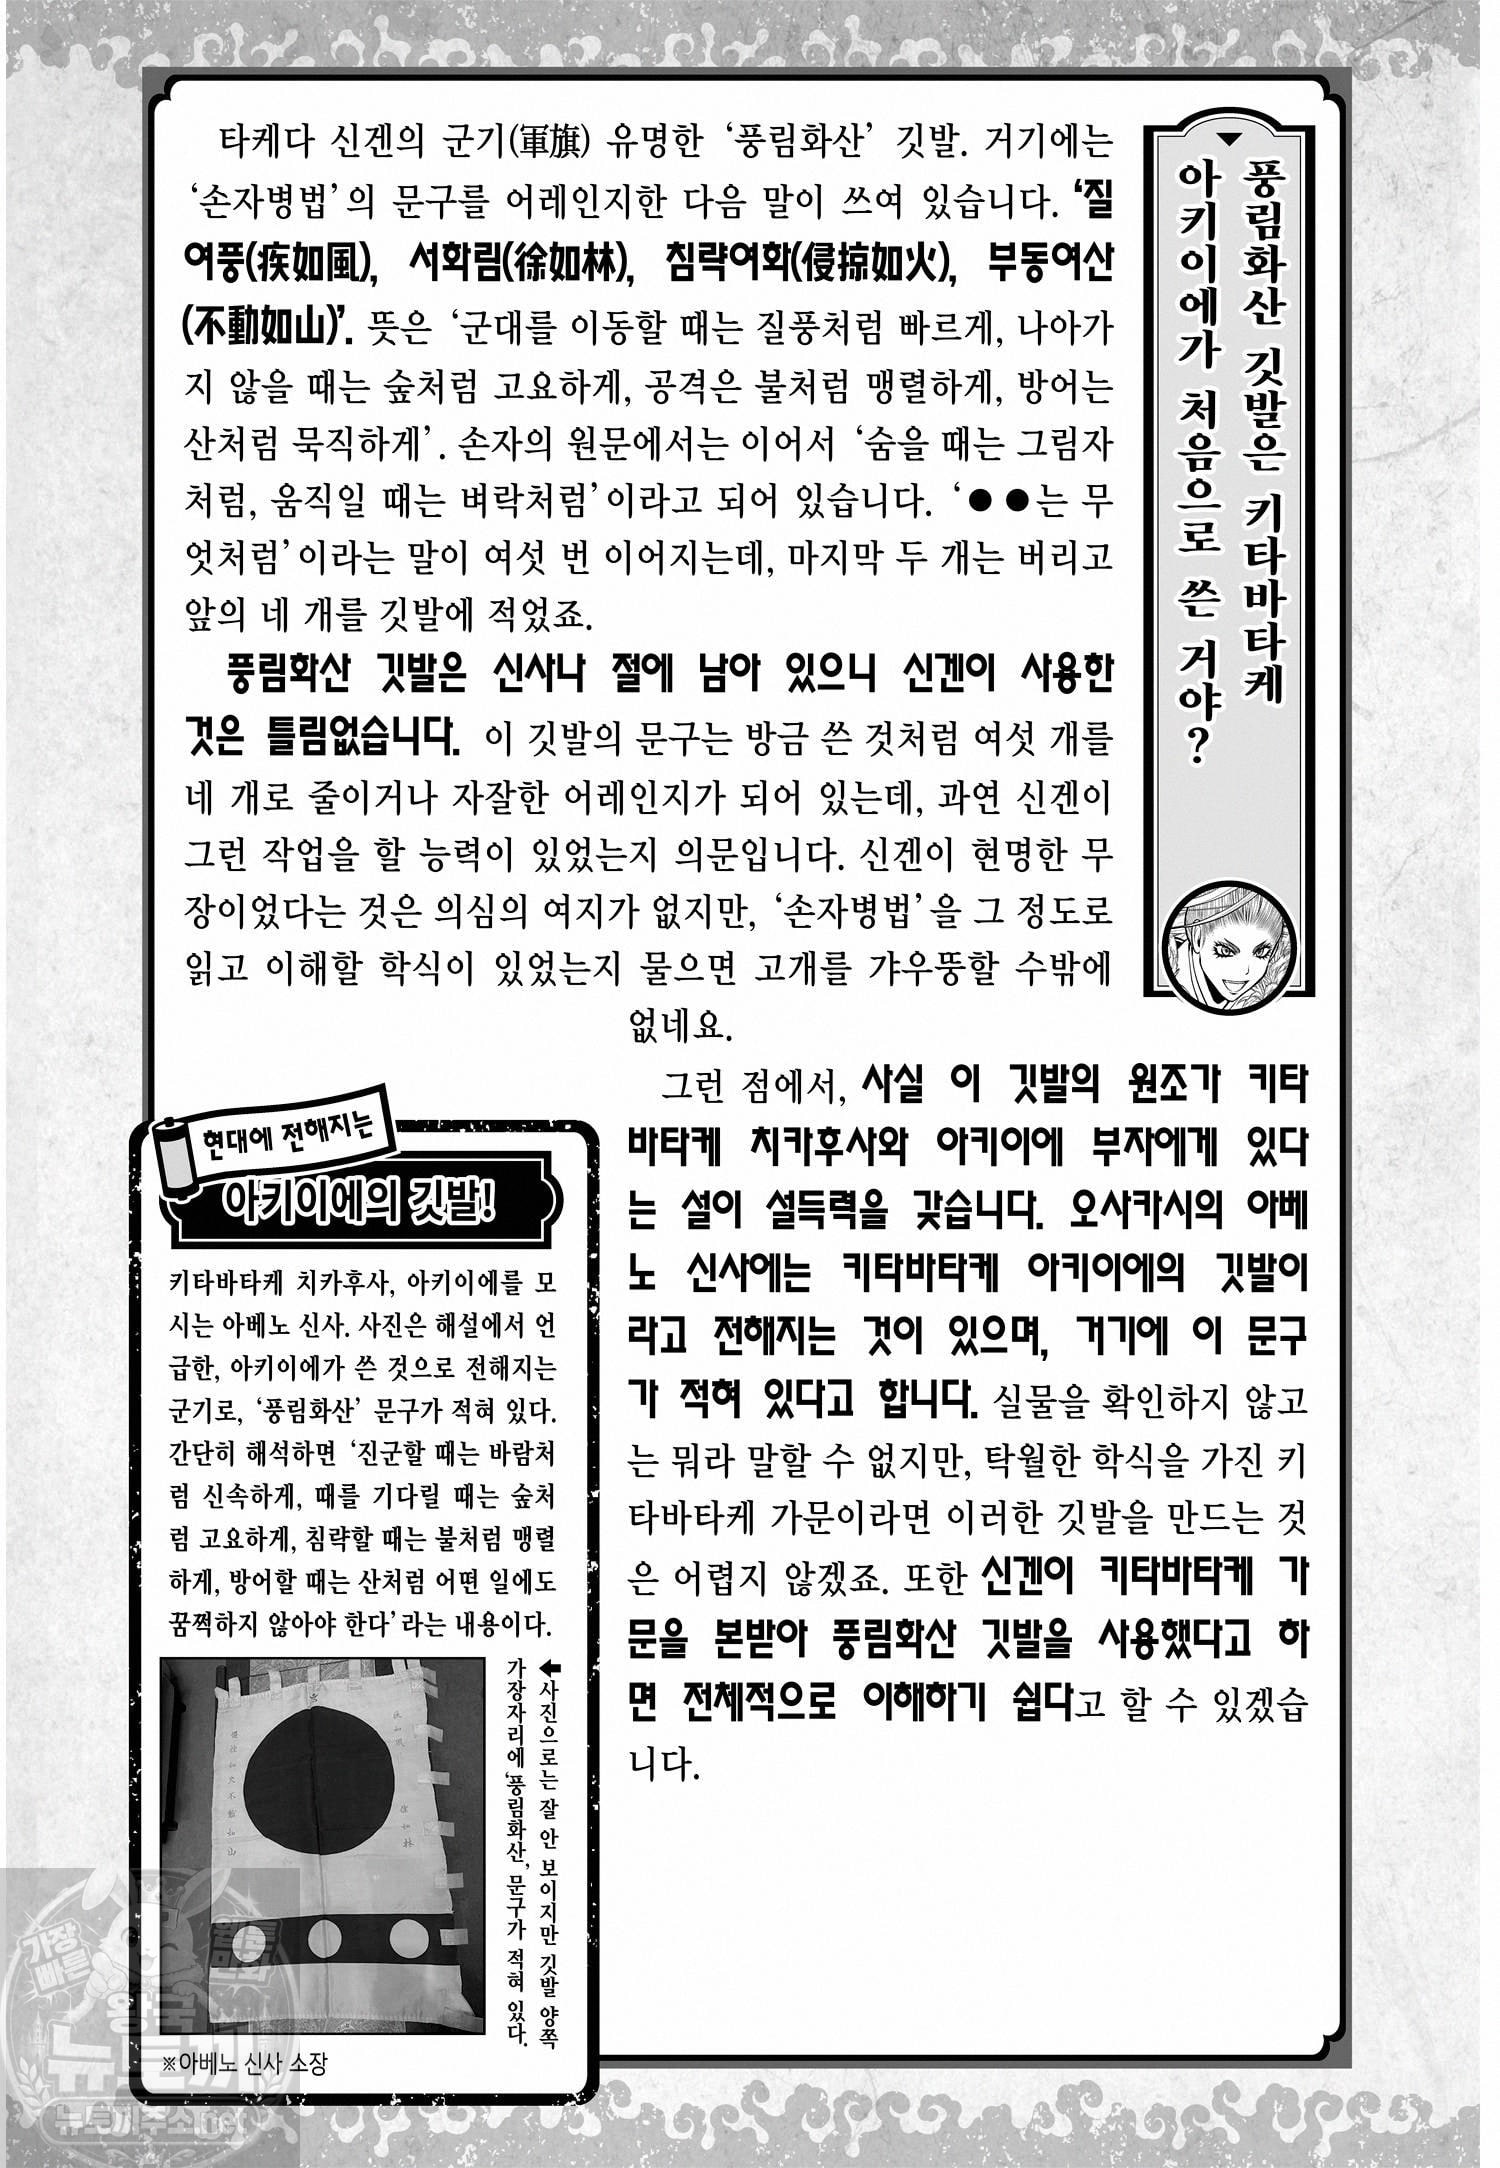 풍림화산 깃발은 키타바타케
아키이에가 처음으로 쓴 거야?
타케다 신겐의 군기(軍旗) 유명한 ‘풍림화산’ 깃발. 거기에는
‘손자병법’의 문구를 어레인지한 다음 말이 쓰여 있습니다. ‘질
여풍(疾如風), 서학림(徐如林), 침략여화(侵掠如火), 부동여산
(不動如山)’. 뜻은 ‘군대를 이동할 때는 질풍처럼 빠르게, 나아가
지 않을 때는 숲처럼 고요하게, 공격은 불처럼 맹렬하게, 방어는
산처럼 묵직하게’. 손자의 원문에서는 이어서 ‘숨을 때는 그림자
처럼, 움직일 때는 벼락처럼’이라고 되어 있습니다. ‘●●는 무
엇처럼’이라는 말이 여섯 번 이어지는데, 마지막 두 개는 버리고
앞의 네 개를 깃발에 적었죠.
풍림화산 깃발은 신사나 절에 남아 있으니 신겐이 사용한
것은 틀림없습니다. 이 깃발의 문구는 방금 쓴 것처럼 여섯 개를
네 개로 줄이거나 자잘한 어레인지가 되어 있는데, 과연 신겐이
그런 작업을 할 능력이 있었는지 의문입니다. 신겐이 현명한 무
장이었다는 것은 의심의 여지가 없지만, ‘손자병법’을 그 정도로
읽고 이해할 학식이 있었는지 물으면 고개를 갸우뚱할 수밖에
없네요.
그런 점에서, 사실 이 깃발의 원조가 키타
바타케 치카후사와 아키이에 부자에게 있다
는 설이 설득력을 갖습니다. 오사카시의 아베
노 신사에는 키타바타케 아키이에의 깃발이
라고 전해지는 것이 있으며, 거기에 이 문구
가 적혀 있다고 합니다. 실물을 확인하지 않고
는 뭐라 말할 수 없지만, 탁월한 학식을 가진 키
타바타케 가문이라면 이러한 깃발을 만드는 것
은 어렵지 않겠죠. 또한 신겐이 키타바타케 가
문을 본받아 풍림화산 깃발을 사용했다고 하
면 전체적으로 이해하기 쉽다고 할 수 있겠습
니다.
현대에 전해지는
아키이에의 깃발!
키타바타케 치카후사, 아키이에를 모
시는 아베노 신사. 사진은 해설에서 언
급한, 아키이에가 쓴 것으로 전해지는
군기로, ‘풍림화산’ 문구가 적혀 있다.
간단히 해석하면 ‘진군할 때는 바람처
럼 신속하게, 때를 기다릴 때는 숲처
럼 고요하게, 침략할 때는 불처럼 맹렬
하게, 방어할 때는 산처럼 어떤 일에도
꿈쩍하지 않아야 한다’라는 내용이다.
疾如風
徐如林
侵掠如火不動如山
⬅사진으로는 잘 안 보이지만 깃발 양쪽
가장자리에 ‘풍림화산’ 문구가 적혀 있다.
※아베노 신사 소장
가장
빠른
웹툰
만화
왕국
뉴토끼
뉴토끼주소.net